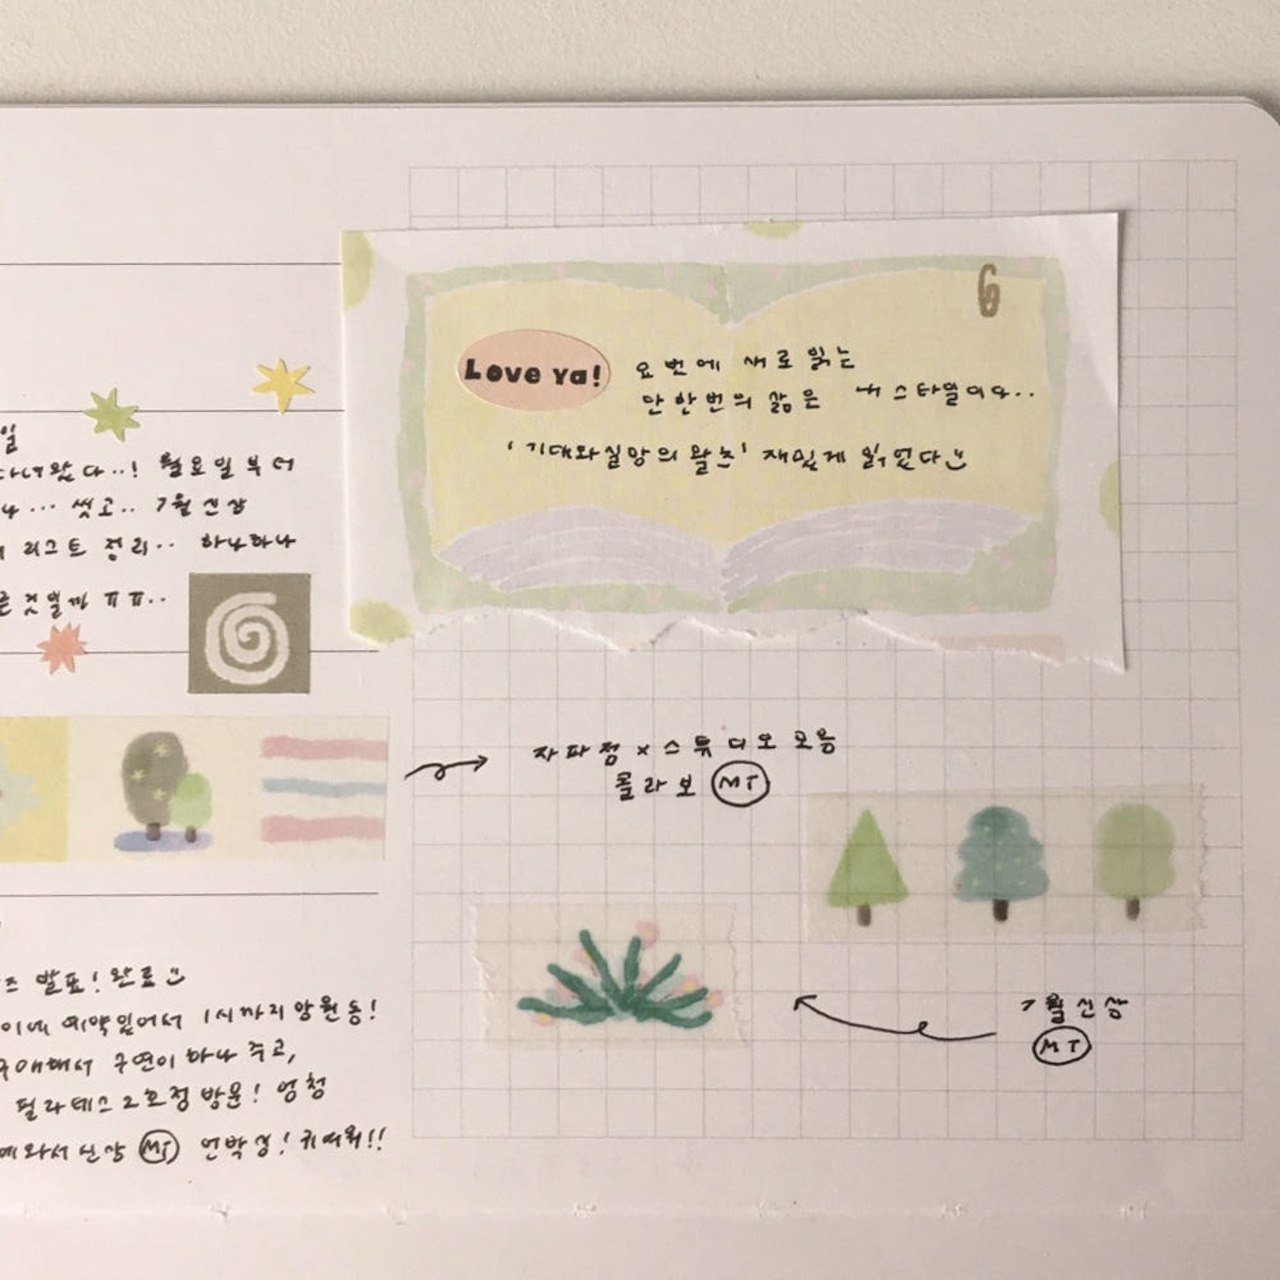 일
다녀왔다..! 월요일부터
... 씻고.. 7월 신상
리스트 정리.. 하나하나
것일까 ㅠㅠ..
발표! 완료
예약있어서 1시까지 망원동!
구연이 하나 주고,
필라테스 2호점 방문! 엄청
와서 신상 MT 언박싱! 귀여워!!
6
Love ya!
요번에 새로 읽는
단 한번의 삶은 내 스타일이다..
'기대와 실망의 왈츠' 재밌게 읽었다
자파점 x 스튜디오 모음
콜라보 MT
7월 신상
MT